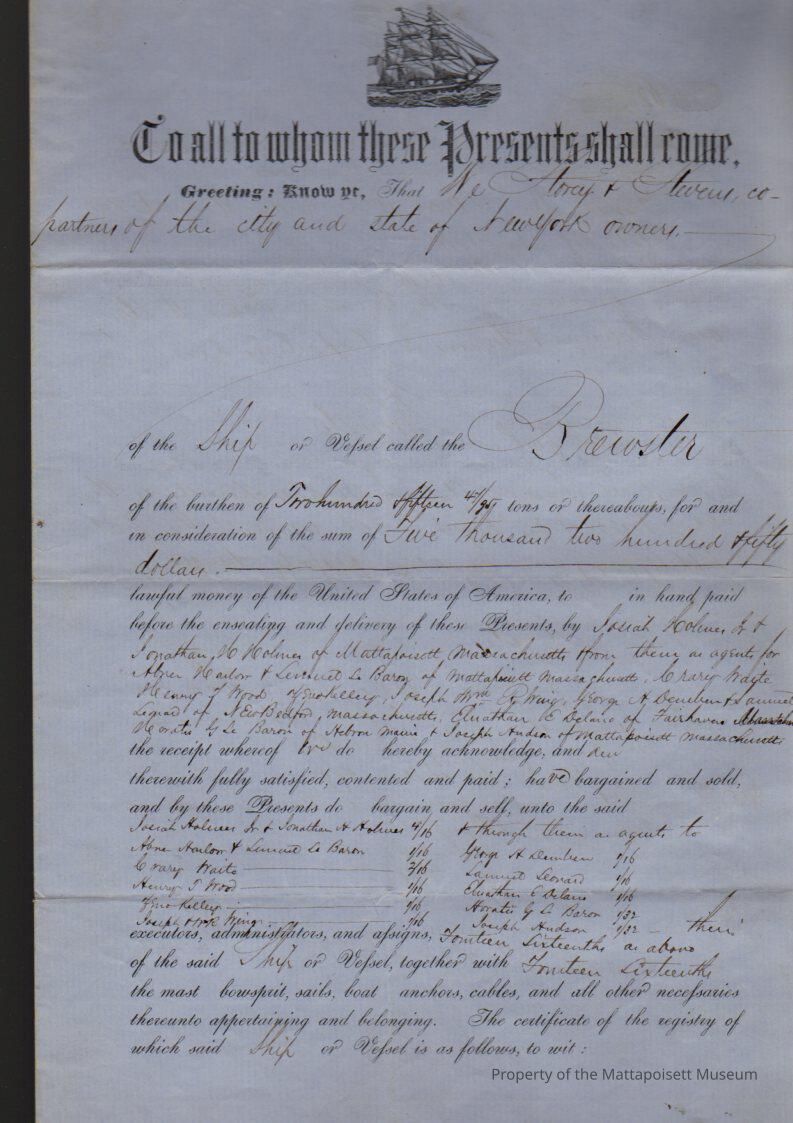 To all to whom these Presents shall come,
Greeting: Know ye, That We Storey & Stevens, co-
partners of the city and state of New York owners.
of the Ship or Vessel called the Brewster
of the burthen of Two hundred & fifteen 41/95 tons or thereabouts, for and
in consideration of the sum of Five thousand two hundred & fifty
dollars.
lawful money of the United States of America, to in hand paid
before the ensealing and delivery of these Presents, by Josiah Holmes Jr &
Jonathan H Holmes of Mattapoisett, Massachusetts & from them as agents for
Abner Harlow & Lemuel Le Baron of Mattapoisett Massachusetts, Crary Waite
Henry T Wood, Zeno Kelley, Joseph & Wm R Wing, George A & Samuel
Leonard of New Bedford, Massachusetts, Elnathan E Delano of Fairhaven
Horatio G Le Baron of Hebron Maine & Joseph Hudson of Mattapoisett Massachusetts
the receipt whereof we do hereby acknowledge, and
therewith fully satisfied, contented and paid; have bargained and sold,
and by these Presents do bargain and sell, unto the said
Josiah Holmes Jr & Jonathan H Holmes 4/16 & through them as agents to
Abner Harlow & Lemuel Le Baron 1/16 George A 1/16
Crary Waite 2/16 Samuel Leonard 1/16
Henry T Wood 1/16 Elnathan E Delano 1/16
Zeno Kelley 1/16 Horatio G Le Baron 1/32
Joseph & Wm R Wing 1/16 Joseph Hudson 1/32 – their
executors, administrators, and assigns, Fourteen Sixteenths as above
of the said Ship or Vessel, together with Fourteen Sixteenths
the mast bowsprit, sails, boat anchors, cables, and all other necessaries
thereunto appertaining and belonging. The certificate of the registry of
which said Ship or Vessel is as follows, to wit:
Property of the Mattapoisett Museum